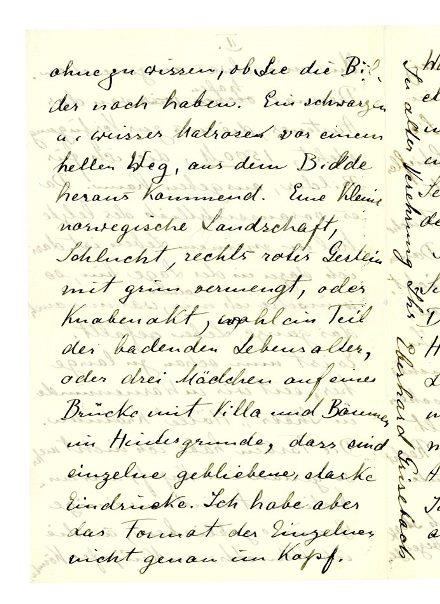 II.
ohne zu wissen, ob Sie die Bil-
der noch haben. Ein schwarzer
u. weisser Matrose vor einem
hellen Weg, aus dem Bilde
heraus kommend. Eine kleine
norwegische Landschaft,
Schlucht, rechts rotes Gestein
mit grün vermengt, oder
Knabenakt, wohl ein Teil
der badenden Lebensalter,
oder drei Mädchen auf einer
Brücke mit Villa und Bäumen
im Hintergrunde, dass sind
einzelne gebliebene, starke
Eindrücke. Ich habe aber
das Format der Einzelnen
nicht genau im Kopf.
In alter Verehrung Ihr Eberhard Grisebach